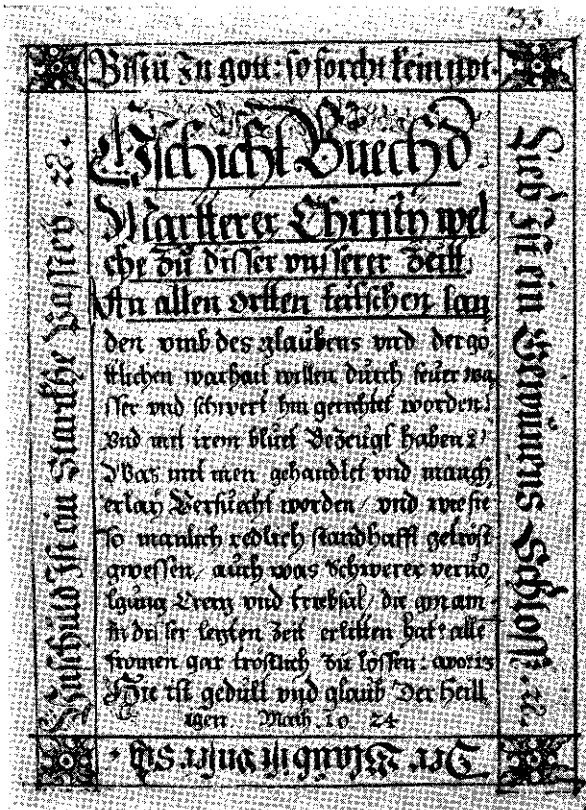 33
Bistü In gott: so forcht kein not.
Gschicht Buech d.
Martterer Christy wel
che zu disser vnsserer Zeitt
An allen ortten teütschen lan
den vmb des glaübens vnd der gö
ttlichen warhait willen dürch feüer wa
sser vnd schwert hin gericht worden:
Vnd mit irem blüet Bezeügt haben:
Was mit inen gehandlet vnd manch
erlay Versücht worden / vnd wie sie
so manlich redlich standhafft getröst
gwessen / aüch was Schwerer veruo
lgüng vnd trüebsal / die gmain
In disser letzten Zeit erlitten hat: alle
fromen gar tröstlich Zü lössen:
Hie ist gedült vnd glaüb Der heili
igen Math. 10 24
Vnschüld Ist ein Starckhe Passtey. etc.
Lieb Ist ein Schloss. etc.
Der Glaub ist vnser Sig.